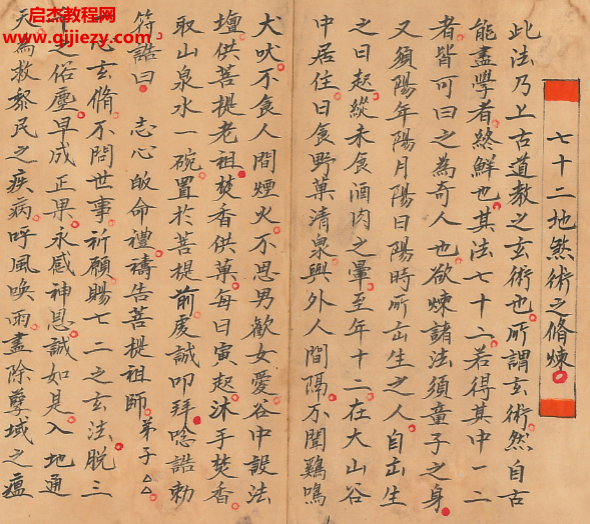 启杰电子书
www.qijiewh.com
七十二地煞術之脩煉
此法乃上古道教之玄術也所謂玄術然自古
能盡學者終鮮也其法七十二若得其中一二
者皆可曰之為奇人也欲煉諸法須童子之身
又須陽年陽月陽日陽時所出生之人自出生
之日起從未食酒肉之葷至年十二在大山谷
中居住日食野菓清泉與外人間隔不聞鷄鳴
犬吠不食人間煙火不思男歡女愛谷中設法
壇供菩提老祖焚香供菓每日寅起沐手焚香
取山泉水一碗置於菩提前虔誠叩拜唸誥勅
符誥曰 志心皈命禮禱告菩提祖師弟子△△
心玄脩不問世事祈願賜七二之玄法脫三
俗塵早成正果永感神恩誠如是入地通
天為救黎民之疾病呼風喚雨盡除孽域之瘟